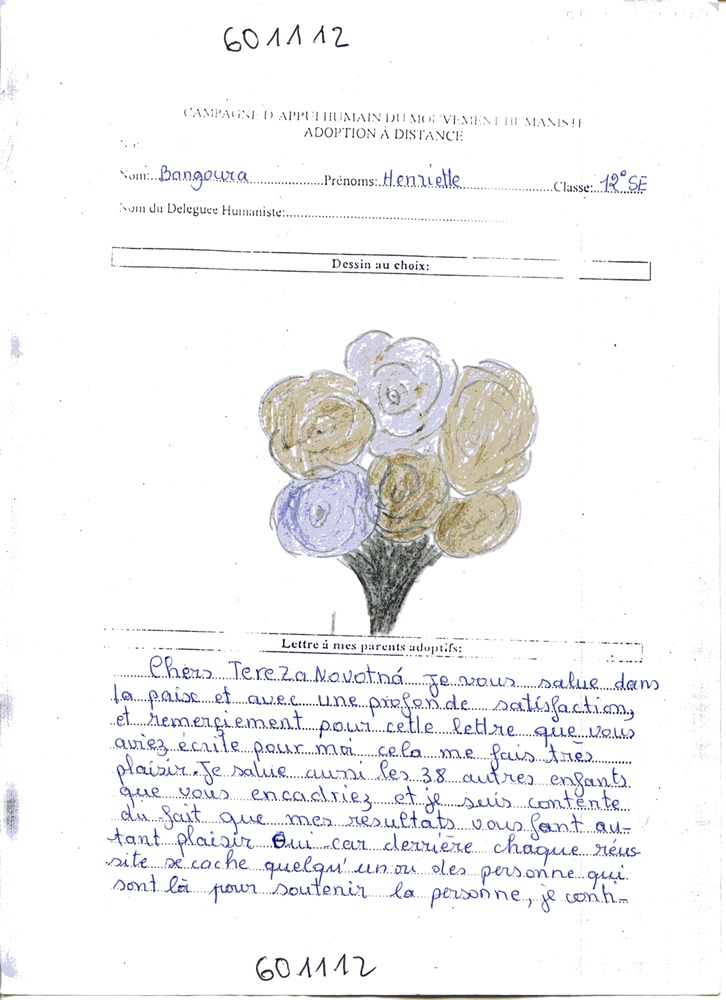 601112
CAMPAGNE D'APPUI HUMAIN DU MOUVEMENT HUMANISTE
ADOPTION À DISTANCE
Nom: Bangoura Prénoms: Henriette Classe: 12° SE
Nom du Deleguee Humaniste:
Dessin au choix:
Lettre á mes parents adoptifs:
Chers Tereza Novotná Je vous salue dans
la paix et avec une profonde satisfaction,
et remerçiement pour cette lettre que vous
aviez écrite pour moi cela me fais très
plaisir. Je salue aussi les 38 autres enfants
que vous encadriez et je suis contente
du fait que mes résultats vous font au-
tant plaisir Oui car derrière chaque réus-
site se cache quelqu'un ou des personne qui
sont là pour soutenir la personne, je conti-
601112